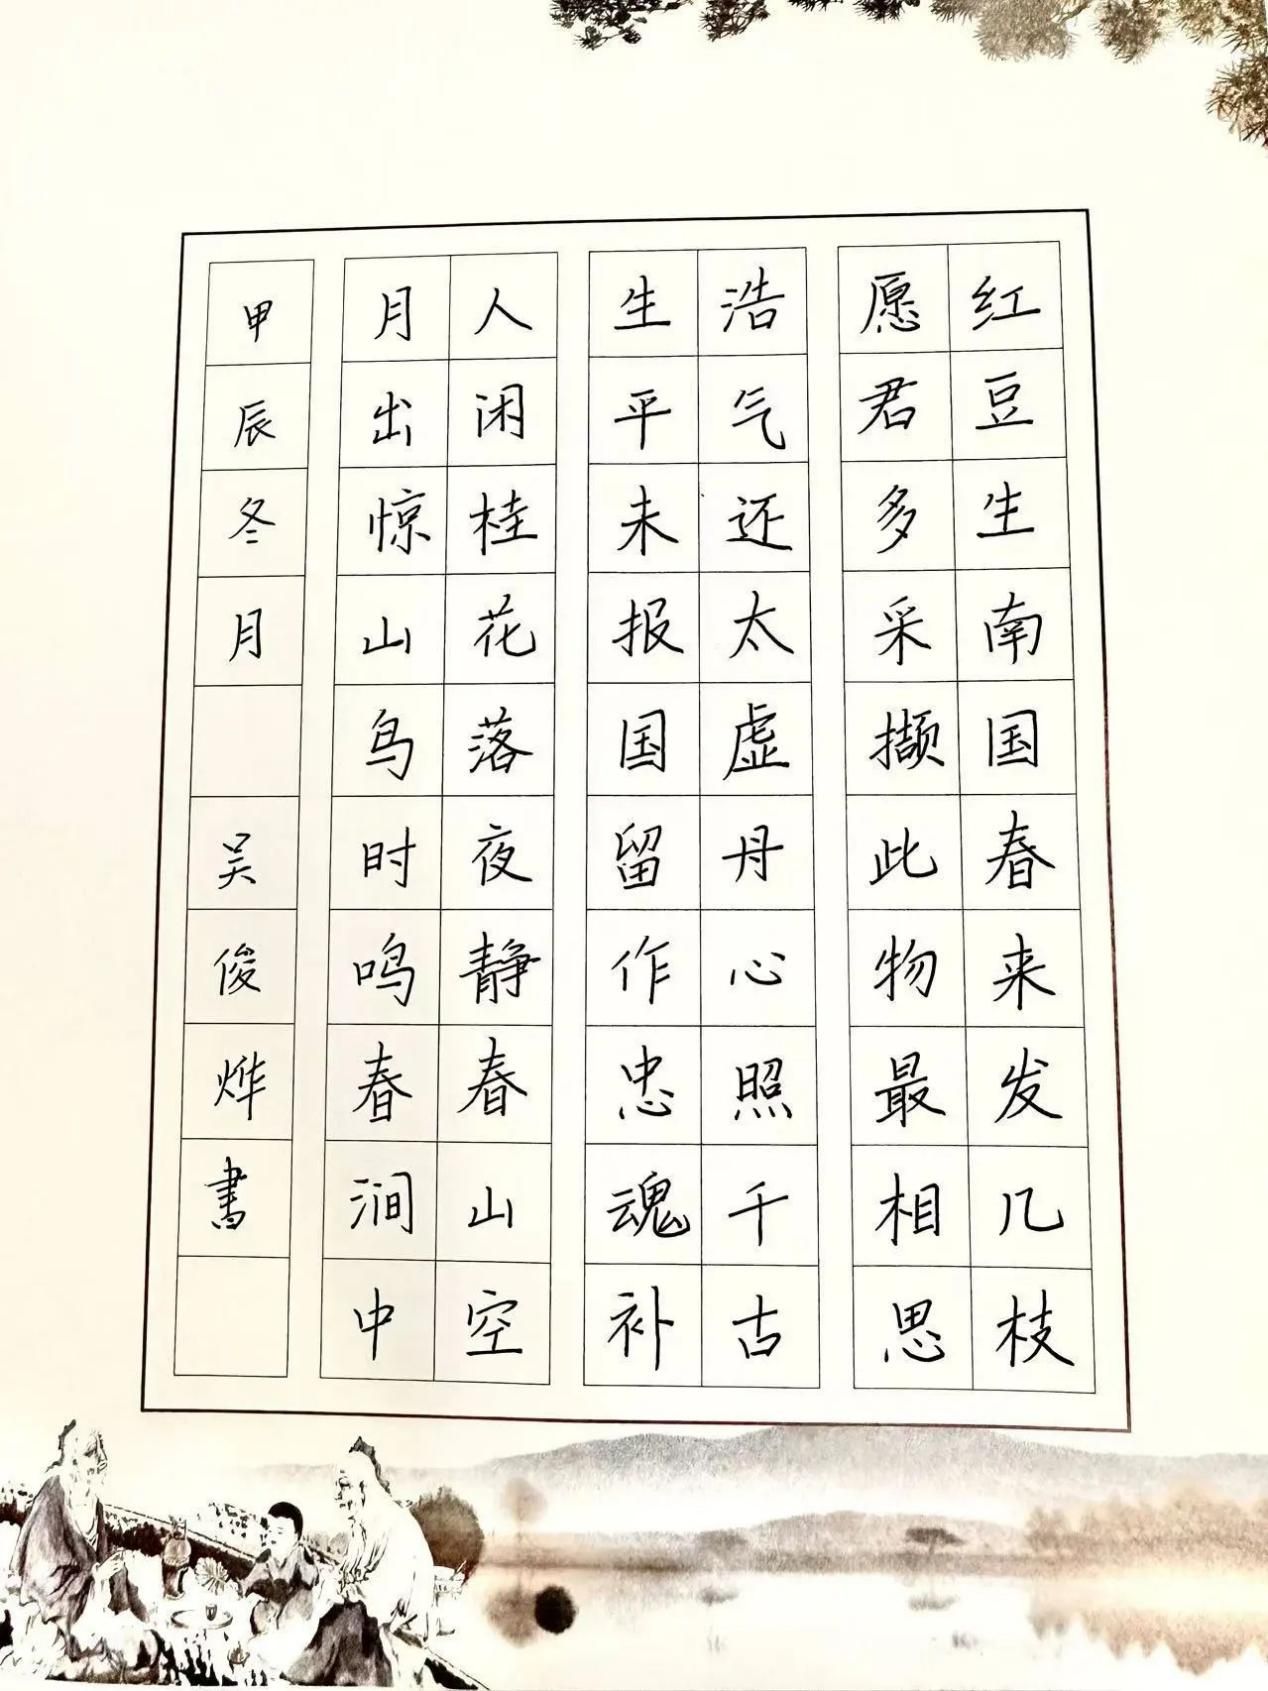 红豆生南国春来发几枝
愿君多采撷此物最相思
浩气还太虚丹心照千古
生平未报国留作忠魂补
人闲桂花落夜静春山空
月出惊山鸟时鸣春涧中
甲辰冬月 吴俊烨書